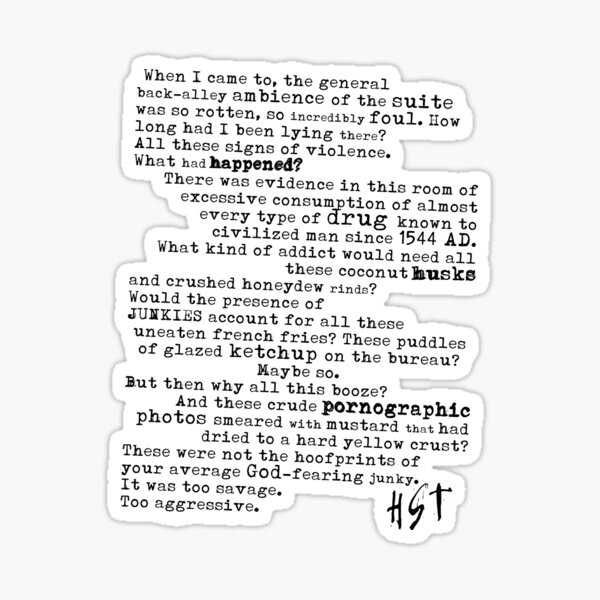 When I came to, the general
back-alley ambience of the suite
was so rotten, so incredibly foul. How
long had I been lying there?
All these signs of violence.
What had happened?
There was evidence in this room of
excessive consumption of almost
every type of drug known to
civilized man since 1544 AD.
What kind of addict would need all
these coconut husks
and crushed honeydew rinds?
Would the presence of
JUNKIES account for all these
uneaten french fries? These puddles
of glazed ketchup on the bureau?
Maybe so.
But then why all this booze?
And these crude pornographic
photos smeared with mustard that had
dried to a hard yellow crust?
These were not the hoofprints of
your average God-fearing junky.
It was too savage.
Too aggressive.
HST